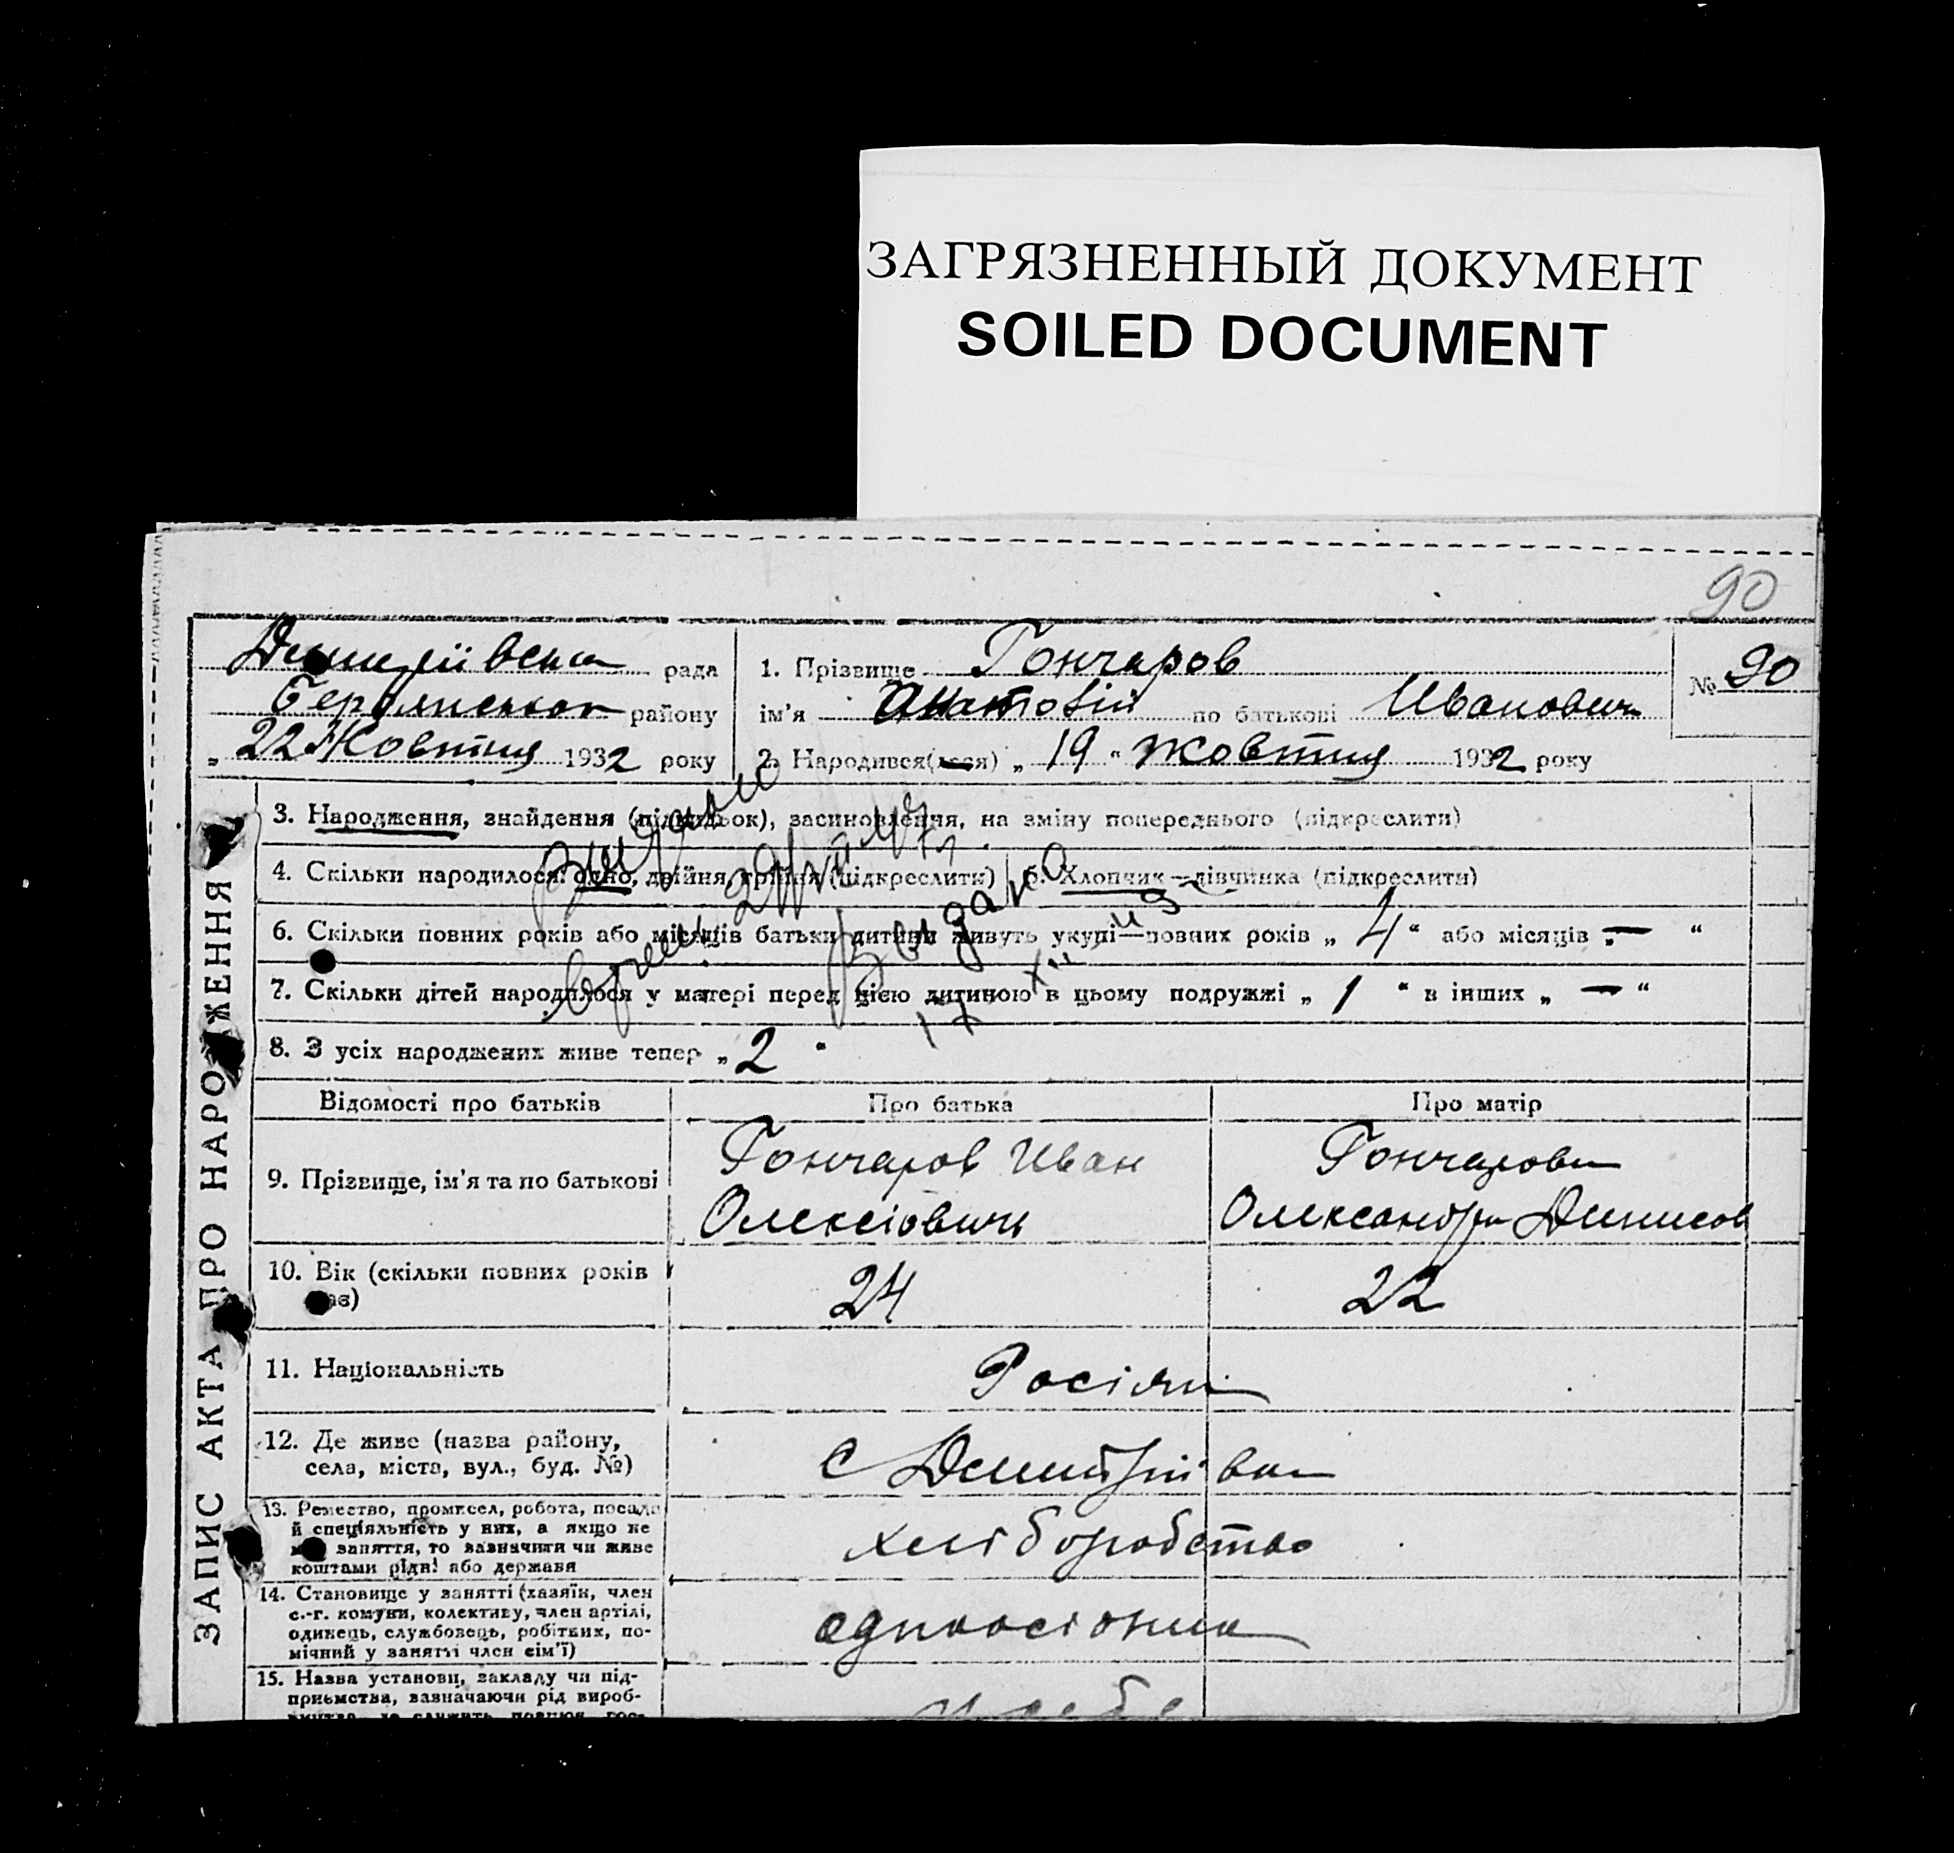 ЗАГРЯЗНЕННЫЙ ДОКУМЕНТ
SOILED DOCUMENT
90
Дмитріївська рада
району
„ 22 Жовтня 1932 року
1. Прізвище Гончаров
ім'я Анатолій по батькові Иванович
2. Народився(лася) „ 19 “ жовтня 1932 року
№ 90
ЗАПИС АКТА ПРО НАРОДЖЕННЯ
3. Народження, знайдення (підкидьок), засиновлення, на зміну попереднього (підкреслити)
4. Скільки народилося: одно, двійня, трійня (підкреслити) 5. Хлопчик—дівчинка (підкреслити)
6. Скільки повних років або місяців батьки дитини живуть укупі—повних років „ 4 “ або місяців „ — “
7. Скільки дітей народилося у матері перед цією дитиною в цьому подружжі „ 1 “ в інших „ — “
8. З усіх народжених живе тепер „ 2 “
Видано
Відомості про батьків Про батька Про матір
9. Прізвище, ім'я та по батькові
Гончаров Иван
Олексіович
Гончарова
Олександра Денисов
10. Вік (скільки повних років
має)
24 22
11. Національність Росіяни
12. Де живе (назва району,
села, міста, вул., буд. №)
с Дмитріївка
13. Ремество, промисел, робота, посада
й спеціяльність у них, а якщо не
має заняття, то зазначити чи живе
коштами рідні або держави
хліборобство
14. Становище у занятті (хазяїн, член
с.-г. комуни, колективу, член артілі,
одинець, службовець, робітник, по-
мічний у занятті член сім'ї)
одноосібник
15. Назва установи, закладу чи під-
приємства, зазначаючи рід вироб-